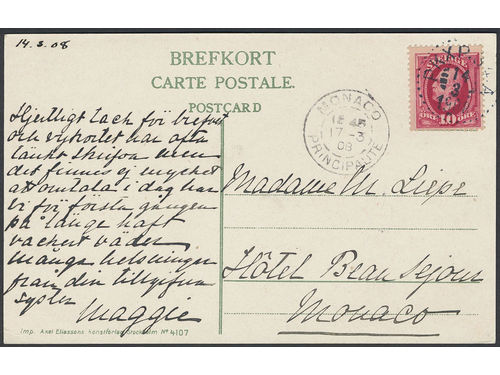 14.3.08
BREFKORT
CARTE POSTALE.
POSTCARD
SVERIGE
ÖRE 10 ÖRE
14
3
MONACO
17-3
08
PRINCIPAUTÉ
Hjertligt tack för brefvet
och vykortet har ofta
tänkt skrifva men
det finnes ej mycket
att omtala i dag har
vi för första gången
på länge haft
vackert väder
många helsningar
från din tillgifna
syster
Maggie
Madame M. Liepe
Hôtel Beau Sejour
Monaco
Imp. Axel Eliassons Konstförlag Stockholm No 4107